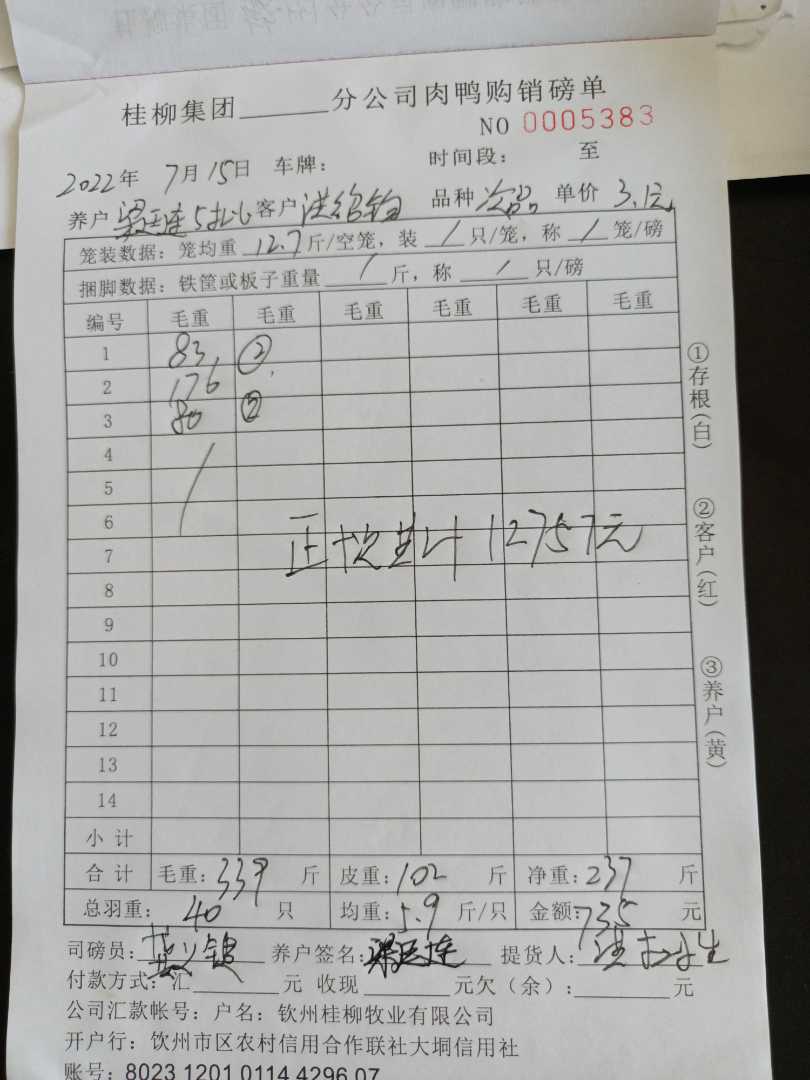 桂柳集团______分公司肉鸭购销磅单
NO 0005383
2022年 7月15日 车牌： 时间段： 至
养户 梁 连5批 客户 洪 品种 次品 单价 3.1元
笼装数据：笼均重 12.7 斤/空笼，装 / 只/笼，称 / 笼/磅
捆脚数据：铁筐或板子重量 / 斤，称 / 只/磅
编号 毛重 毛重 毛重 毛重 毛重 毛重
1 83 ②
2 176
3 80 ②
4
5
6
正次共计 12757元
7
8
9
10
11
12
13
14
小计
合计 毛重：339 斤 皮重：102 斤 净重：237 斤
总羽重： 40 只 均重：5.9 斤/只 金额：735 元
司磅员： 养户签名：梁 连 提货人：洪 生
付款方式：汇______元 收现______元欠（余）：______元
公司汇款帐号：户名：钦州桂柳牧业有限公司
开户行：钦州市区农村信用合作联社大垌信用社
账号：8023 1201 0114 4296 07
①存根（白）
②客户（红）
③养户（黄）